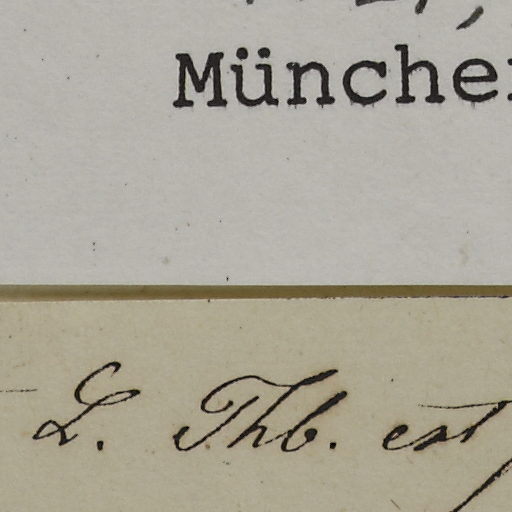 Münche
L. Thb. est